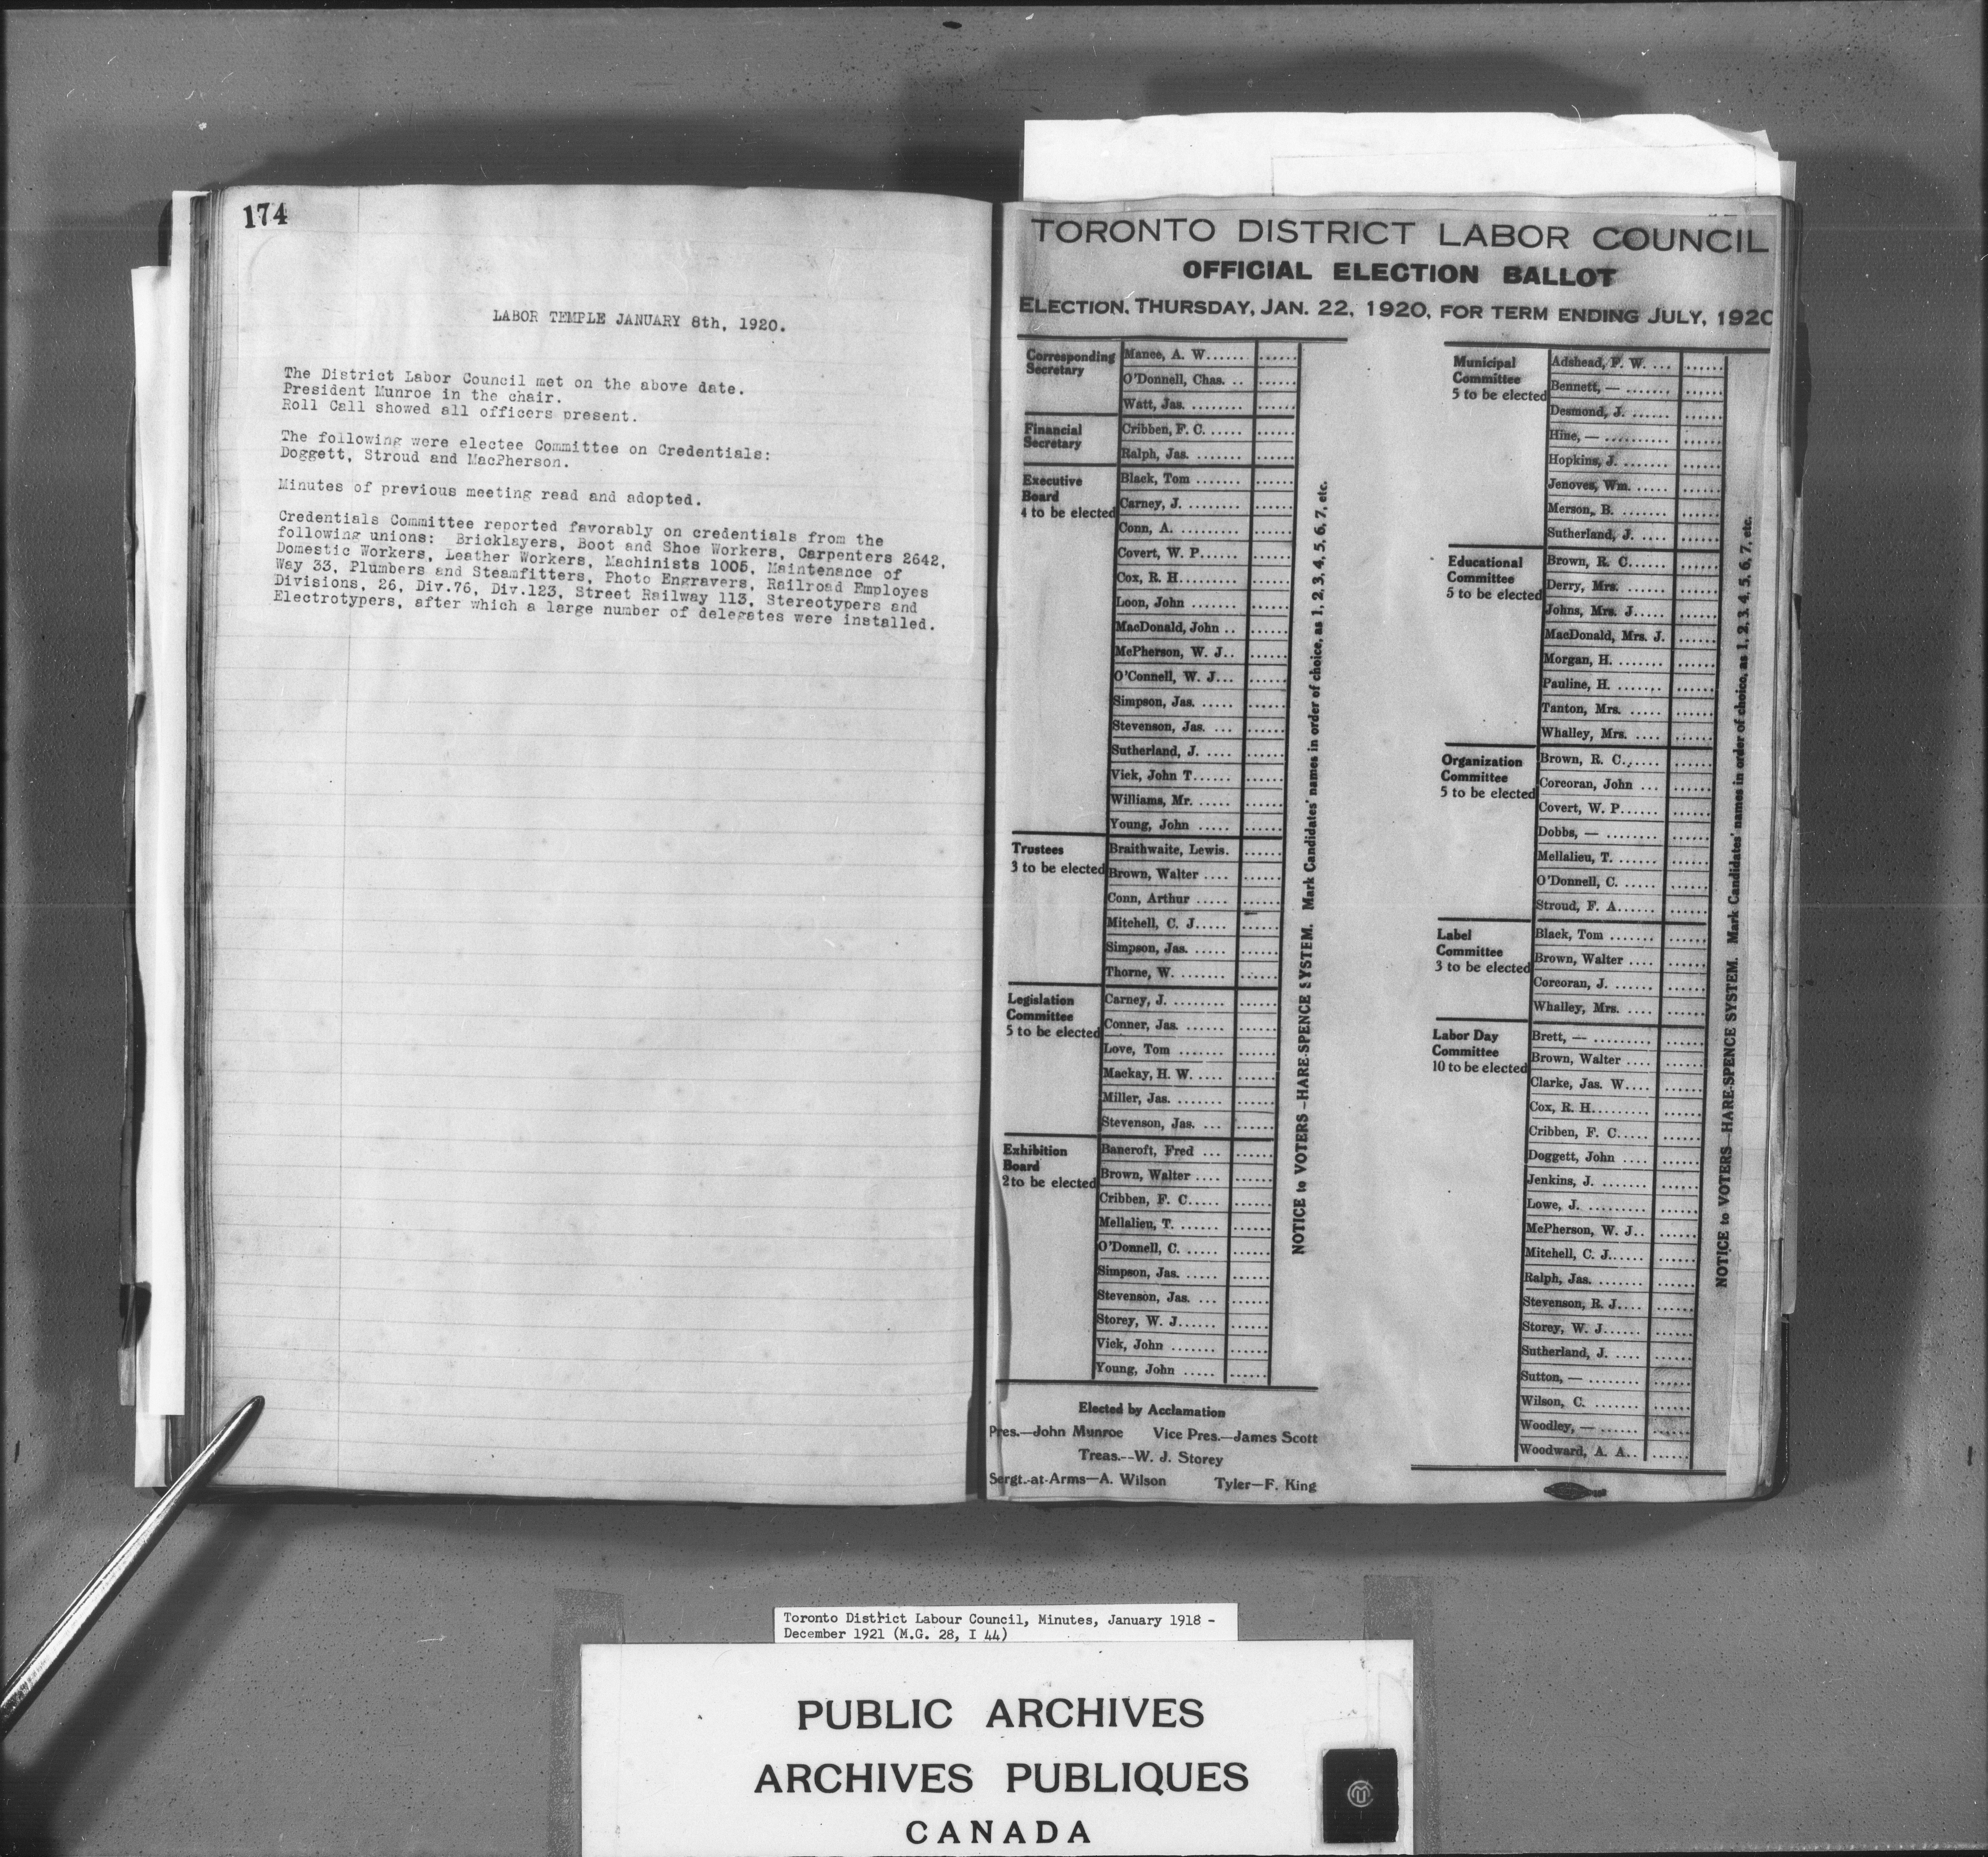 174
LABOR TEMPLE JANUARY 8th, 1920.
The District Labor Council met on the above date.
President Munroe in the chair.
Roll Call showed all officers present.
The following were electee Committee on Credentials:
Doggett, Stroud and MacPherson.
Minutes of previous meeting read and adopted.
Credentials Committee reported favorably on credentials from the
following unions: Bricklayers, Boot and Shoe Workers, Carpenters 2642,
Domestic Workers, Leather Workers, Machinists 1005, Maintenance of
Way 33, Plumbers and Steamfitters, Photo Engravers, Railroad Employes
Divisions, 26, Div.76, Div.123, Street Railway 113, Stereotypers and
Electrotypers, after which a large number of delegates were installed.
TORONTO DISTRICT LABOR COUNCIL
OFFICIAL ELECTION BALLOT
ELECTION, THURSDAY, JAN. 22, 1920, FOR TERM ENDING JULY, 1920
Corresponding
Secretary
Manee, A. W.......
O'Donnell, Chas. ..
Watt, Jas. ........
Financial
Secretary
Cribben, F. C. .....
Ralph, Jas. .......
Executive
Board
4 to be elected
Black, Tom .......
Carney, J. ........
Conn, A. .........
Covert, W. P......
Cox, R. H.........
Loon, John .......
MacDonald, John ..
McPherson, W. J..
O'Connell, W. J...
Simpson, Jas. .....
Stevenson, Jas. ...
Sutherland, J. ....
Vick, John T......
Williams, Mr. .....
Young, John .....
Trustees
3 to be elected
Braithwaite, Lewis.
Brown, Walter ....
Conn, Arthur .....
Mitchell, C. J.....
Simpson, Jas. .....
Thorne, W. .......
Legislation
Committee
5 to be elected
Carney, J. ........
Conner, Jas. ......
Love, Tom .......
Mackay, H. W. ....
Miller, Jas. .......
Stevenson, Jas. ...
Exhibition
Board
2 to be elected
Bancroft, Fred ...
Brown, Walter ....
Cribben, F. C.....
Mellalieu, T. ......
O'Donnell, C. .....
Simpson, Jas. .....
Stevenson, Jas. ...
Storey, W. J......
Vick, John .......
Young, John .....
NOTICE to VOTERS—HARE-SPENCE SYSTEM. Mark Candidates' names in order of choice, as 1, 2, 3, 4, 5, 6, 7, etc.
Elected by Acclamation
Pres.—John Munroe Vice Pres.—James Scott
Treas.--W. J. Storey
Sergt.-at-Arms—A. Wilson Tyler—F. King
Municipal
Committee
5 to be elected
Adshead, F. W. ...
Bennett, — .......
Desmond, J. ......
Hine, — ..........
Hopkins, J. .......
Jenoves, Wm. .....
Merson, B. .......
Sutherland, J. ....
Educational
Committee
5 to be elected
Brown, R. C......
Derry, Mrs. ......
Johns, Mrs. J.....
MacDonald, Mrs. J.
Morgan, H. .......
Pauline, H. .......
Tanton, Mrs. .....
Whalley, Mrs. ....
Organization
Committee
5 to be elected
Brown, R. C......
Corcoran, John ...
Covert, W. P......
Dobbs, — ........
Mellalieu, T. ......
O'Donnell, C. .....
Stroud, F. A......
Label
Committee
3 to be elected
Black, Tom .......
Brown, Walter ....
Corcoran, J. ......
Whalley, Mrs. ....
Labor Day
Committee
10 to be elected
Brett, — .........
Brown, Walter ....
Clarke, Jas. W....
Cox, R. H.........
Cribben, F. C.....
Doggett, John ....
Jenkins, J. .......
Lowe, J. .........
McPherson, W. J..
Mitchell, C. J.....
Ralph, Jas. .......
Stevenson, R. J....
Storey, W. J......
Sutherland, J. ....
Sutton, — ........
Wilson, C. .......
Woodley, — ......
Woodward, A. A..
NOTICE to VOTERS—HARE-SPENCE SYSTEM. Mark Candidates' names in order of choice, as 1, 2, 3, 4, 5, 6, 7, etc.
Toronto District Labour Council, Minutes, January 1918 -
December 1921 (M.G. 28, I 44)
PUBLIC ARCHIVES
ARCHIVES PUBLIQUES
CANADA